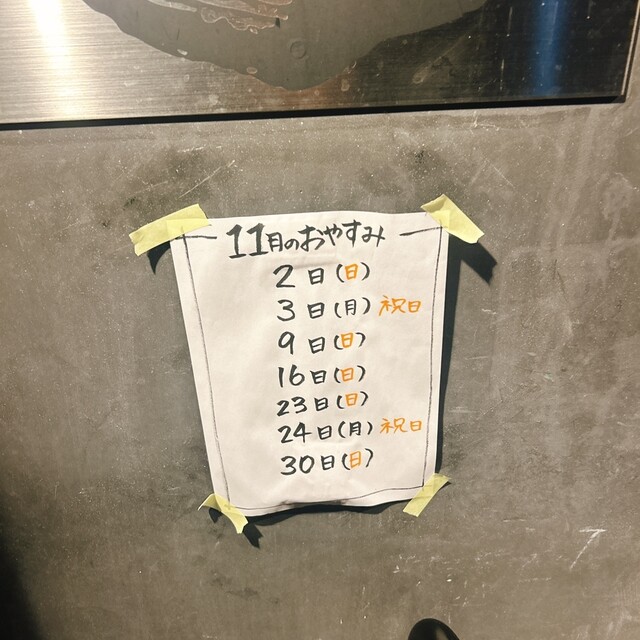 11月のおやすみ
2日(日)
3日(月) 祝日
9日(日)
16日(日)
23日(日)
24日(月) 祝日
30日(日)